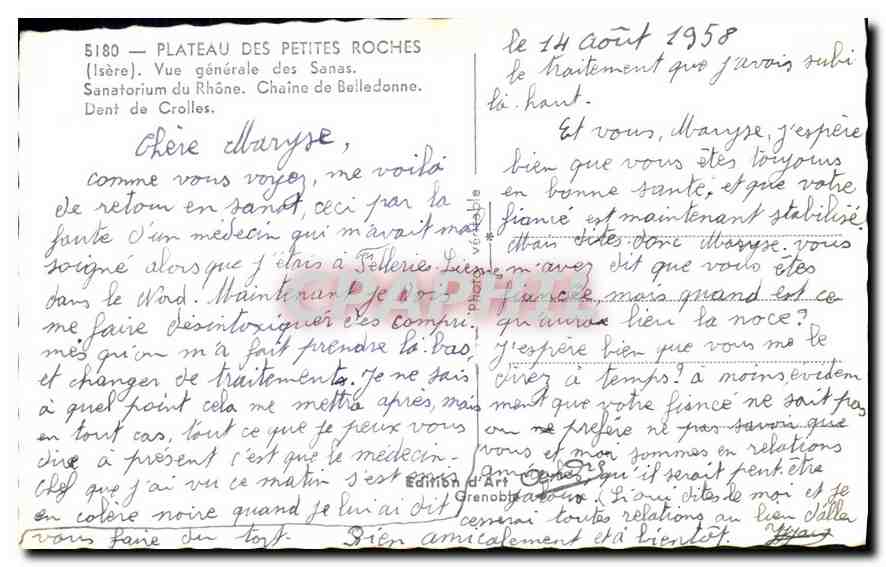 5180 — PLATEAU DES PETITES ROCHES
(Isère). Vue générale des Sanas.
Sanatorium du Rhône. Chaîne de Belledonne.
Dent de Crolles.
Chère Maryse,
comme vous voyez, me voilà
de retour en sanat, ceci par la
faute d'un médecin qui m'avait mal
soigné alors que j'étais à Felleries Liesne
dans le Nord. Maintenant je dois
me faire désintoxiquer des compri-
més qu'on m'a fait prendre là bas,
et changer de traitements. Je ne sais
à quel point cela me mettra après, mais
en tout cas, tout ce que je peux vous
dire à présent c'est que le médecin-
chef que j'ai vu ce matin s'est mis
en colère noire quand je lui ai dit
le 14 août 1958
le traitement que j'avais subi
là-haut.
Et vous, Maryse, j'espère
bien que vous êtes toujours
en bonne santé, et que votre
fiancé est maintenant stabilisé.
Mais dites donc Maryse, vous
m'avez dit que vous êtes
fiancée, mais quand est ce
qu'aura lieu la noce?
J'espère bien que vous me le
direz à temps? à moins, évidem
ment que votre fiancé ne soit pas
ou ne préfère ne pas savoir que
vous et moi sommes en relations
amicales, qu'il serait peut être
jaloux. Si oui dites le moi et je
cesserai toutes relations au lieu d'aller
vous faire du tort. Bien amicalement et à bientôt.
Photo véritable
Edition d'Art
Grenoble
CPAPHIL